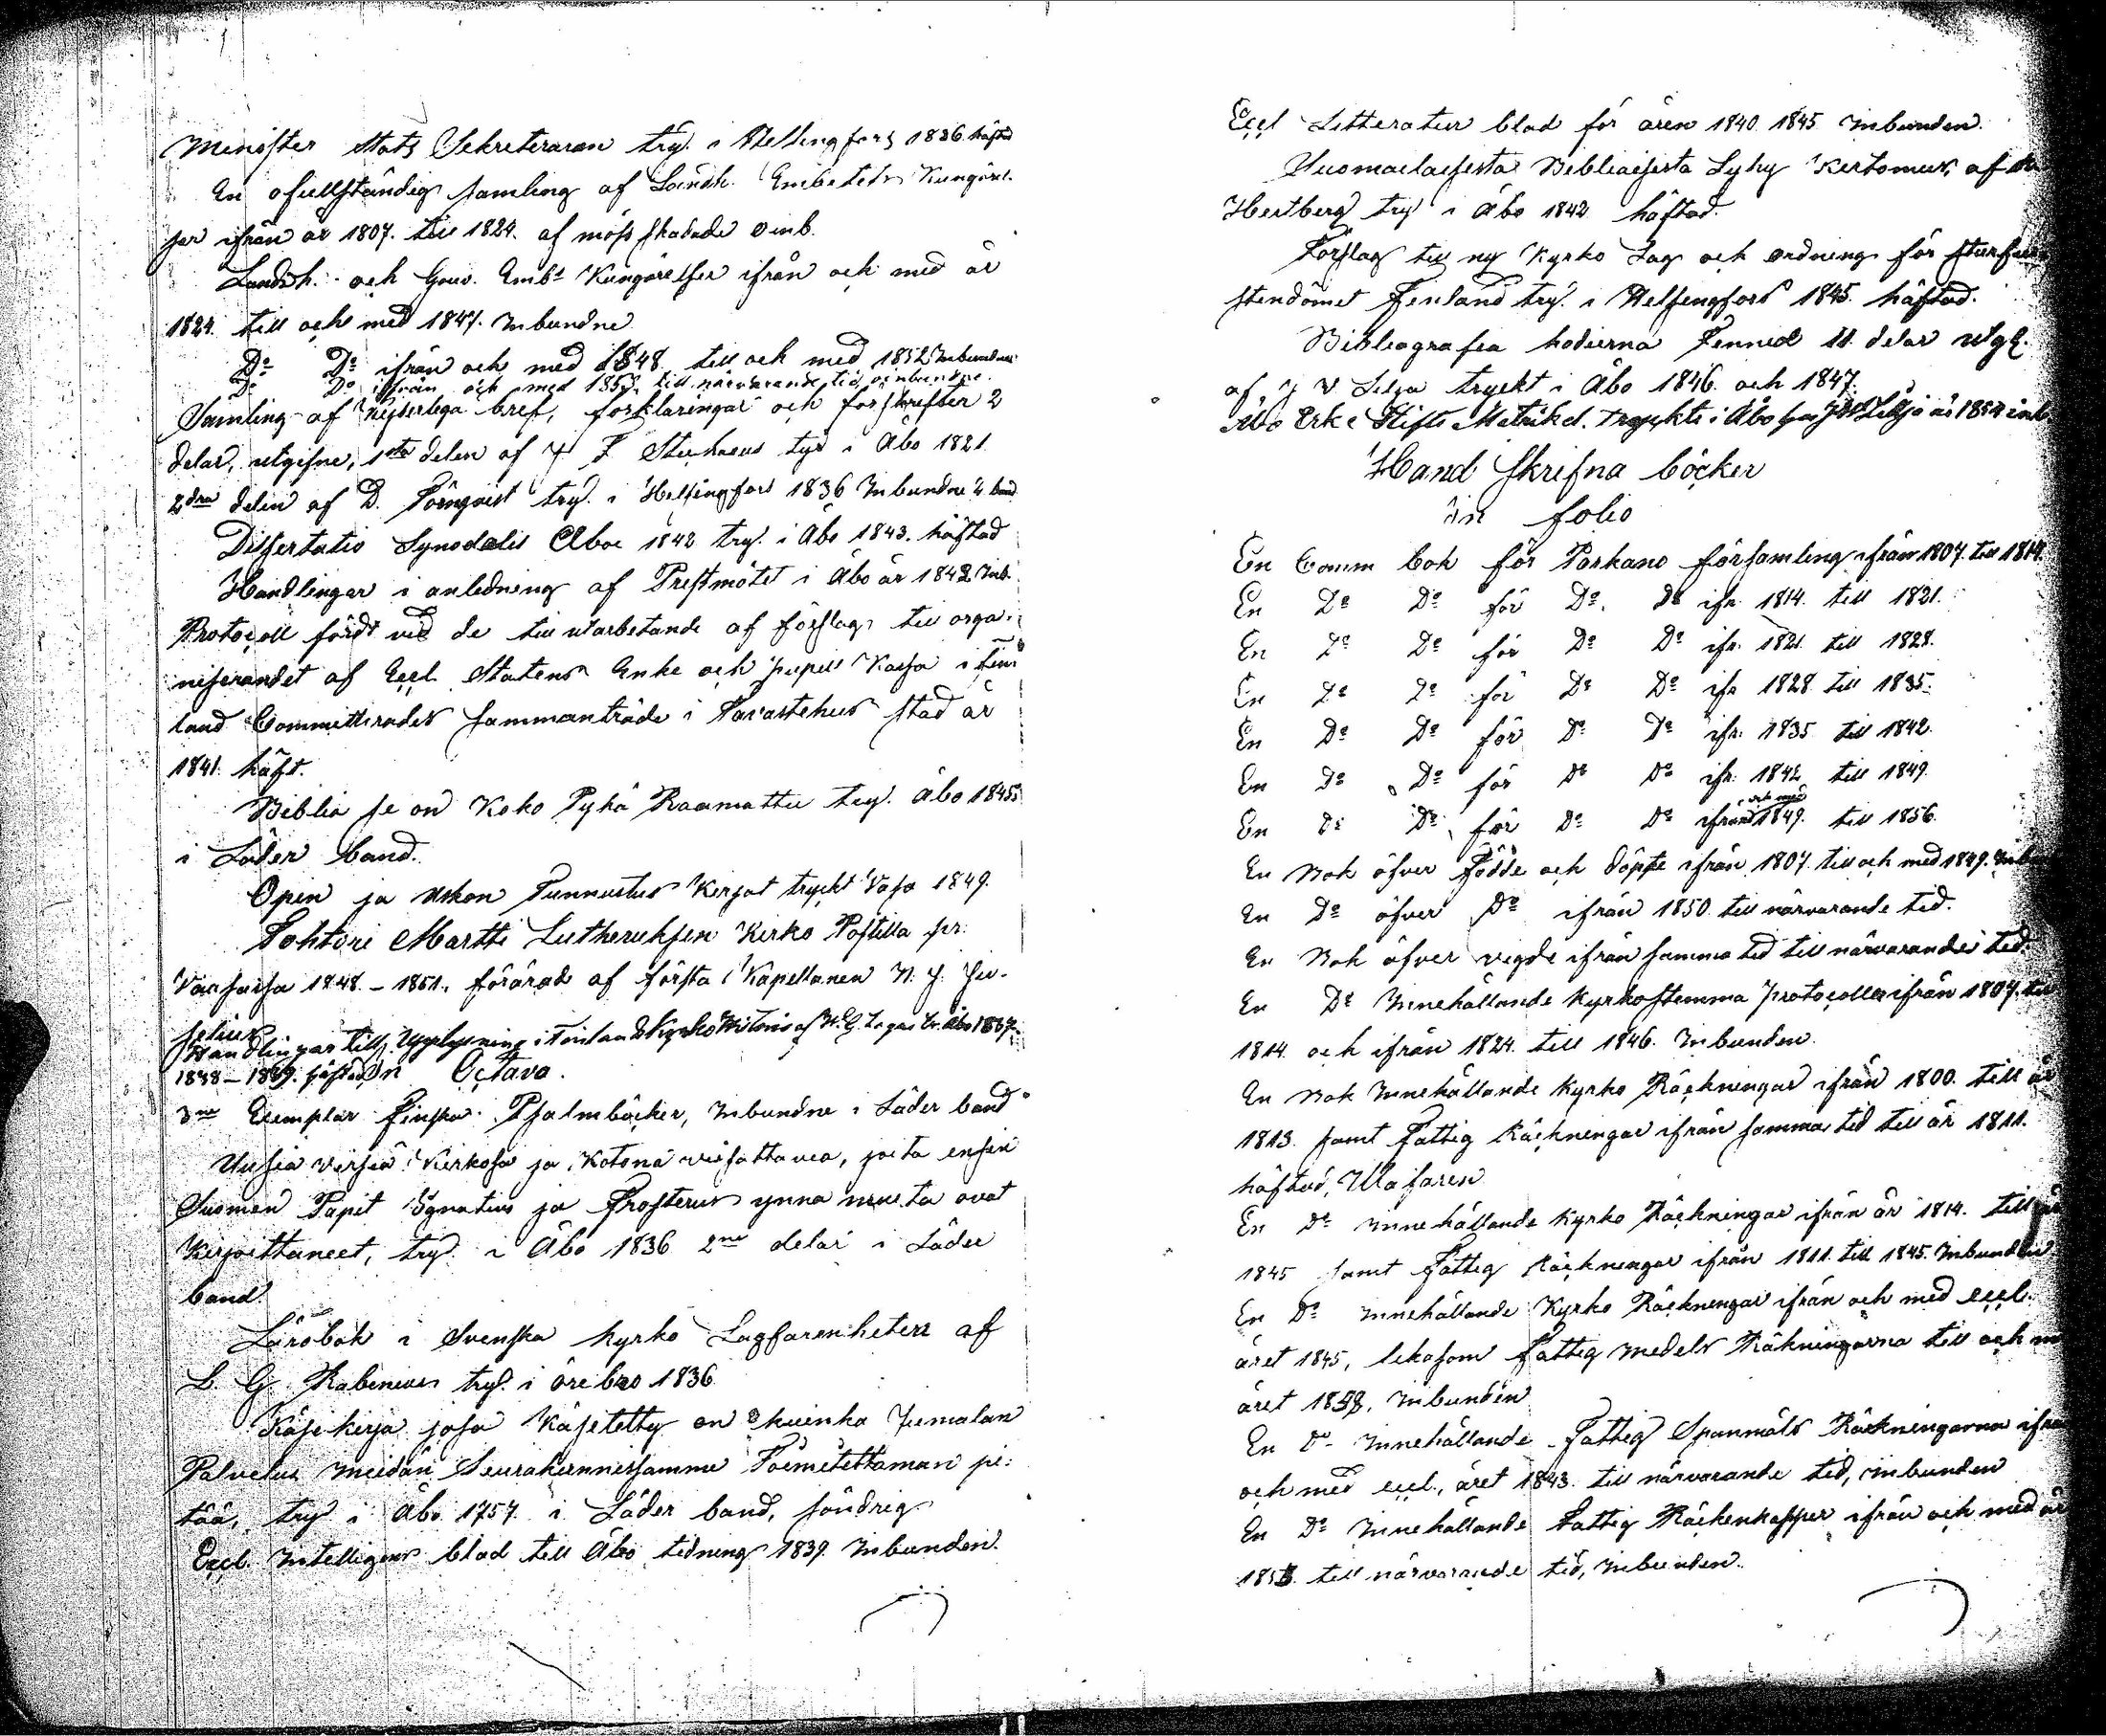 Minister Stats Sekreteraren try. i Helsingfors 1836 häftad
En ofullständig samling af Landsh. Embetets Kungörel-
ser ifrån år 1807. till 1824. af möss skadade oinb.
Landsh. och Gouv. Embts Kungörelser ifrån och med år
1824. till och med 1847. Inbundne
Do Do ifrån och med 1848 till och med 1852 Inbundne
Do Do ifrån och med 1853. till närvarande tid, oinbundne.
Samling af Kejserliga bref, förklaringar och forskrifter 2
delar, utgifne, 1sta delen af J F Stichaeus try i Åbo 1821
2dra delen af D. Törnqvist try. i Helsingfors 1836 Inbundne 4 band
Dissertatio Synodalis Aboe 1842 try. i Åbo 1843. häftad
Handlingar i anledning af Prestmötet i Åbo år 1842 Inb.
Protocoll fördt vid de till utarbetande af förslag till orga-
niserandet af Eccl. Statens Enke och pupill Kassa i Fin
land Committerades sammanträde i Tavastehus stad år
1841. häft.
Biblia se on Koko Pyhä Raamattu try. Åbo 1845
i Läder band.
Open ja Uskon Tunnustus Kirjat tryckt Vasa 1849.
Tohtori Martti Lutheruksen Kirko Postilla pr.
Vaasassa 1848. - 1851., förärad af första Kapellanen N. J. Ju-
selius
Handlingar till Upplysning i Finlands Kyrko Historia af W. G. Lagus tr. Åbo 1837,
1838-1839. häftad In Octavo.
3ne Exemplar finska Psalmböcker, Inbundne i Läder band
Uusia Virsiä Kirkosa ja Kotona veisattavia, joita ensin
Suomen Papit Ignatius ja Frosterus ynna muuta ovat
Kirjoittaneet, try. i Åbo 1836 2ne delar i Läder
band.
Lärobok i Svenska Kyrko Lagfarenheten af
L. G. Rabenius try. i Örebro 1836
Käsikirja josa Käsitetty on kuinka Jumalan
Palvelus meidän Seurakunnissamme Toimitettaman pi-
tää, try i Åbo 1757. i Läder band, söndrig
Eccl. Intelligens blad till Åbo tidning 1839. Inbunden.
Eccl Litteratur blad för åren 1840. 1845 Inbunden.
Suomalaisesta Bibliasesta Lyhy Kertomus, af
Hertberg try i Åbo 1842 häftad.
Förslag till ny Kyrko Lag och ordning för Storfur
stendömet Finland try. i Helsingfors 1845. häftad.
Bibliografia hodierna Fennica II. delar utg.
af J W Lilja tryckt i Åbo 1846. och 1847.
Åbo Erke Stifts Matrikel. Tryckt i Åbo hos JW Lillja år 1854 inb
Hand skrifna böcker
in folio
En Comm bok för Parkano församling ifrån 1807. till 1814.
En Do Do för Do. Do ifr. 1814. till 1821.
En Do Do för Do Do ifr. 1821. till 1828.
En Do Do för Do Do ifr 1828 till 1835.
En Do Do för Do Do ifr. 1835 till 1842.
En Do Do för Do Do ifr. 1842 till 1849.
En Do Do för Do Do ifrån och med 1849. till 1856.
En Bok öfver födde och döpte ifrån 1807. till och med 1849.
En Do öfver Do ifrån 1850 till närvarande tid.
En Bok öfver vigde ifrån samma tid till närvarande tid.
En Do Innehållande Kyrkostemma protocoller ifrån 1807. till
1814. och ifrån 1824. till 1846. Inbunden.
En Bok Innehållande Kyrko Räckningar ifrån 1800. till år
1813. samt Fattig Räckningar ifrån samma tid till år 1811.
häftad,
En Do Innehållande Kyrko Räckningar ifrån år 1814. till år
1845 samt Fattig Räckningar ifrån 1811. till 1845. Inbunden
En Do Innehållande Kyrko Räckningar ifrån och med eccl.
året 1845, likasom Fattig medels Räkningarna till och
året 1858, Inbunden
En Do Innehållande Fattig Spanmåls Räckningarna ifrån
och med eccl., året 1843. till närvarande tid, inbunden
En Do Innehållande Fattig Räckenskapper ifrån och med år
till närvarande tid, Inbunden.